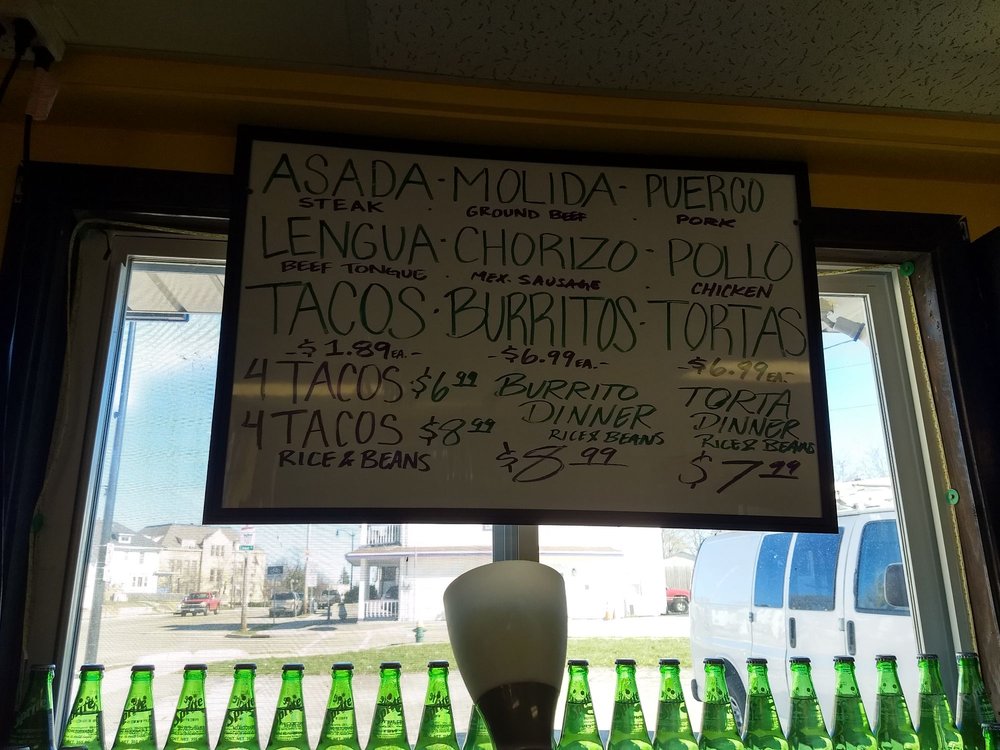 ASADA - MOLIDA - PUERCO
STEAK . GROUND BEEF . PORK
LENGUA - CHORIZO - POLLO
BEEF TONGUE . MEX. SAUSAGE . CHICKEN
TACOS - BURRITOS - TORTAS
-$1.89 EA.- -$6.99 EA.- -$6.99 EA.-
4 TACOS $6.99
4 TACOS $8.99
RICE & BEANS
BURRITO
DINNER
RICE & BEANS
$8.99
TORTA
DINNER
RICE & BEANS
$7.99
Sprite